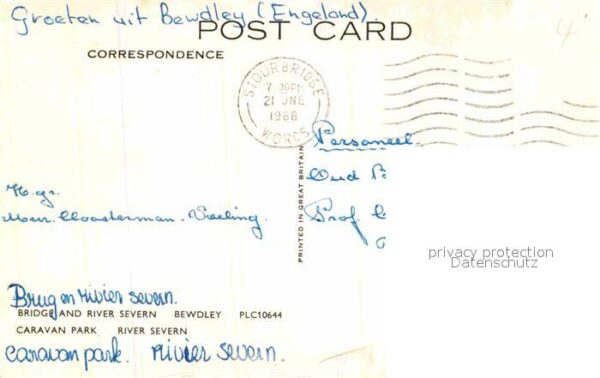 Groeten uit Bewdley (Engeland).
POST CARD
CORRESPONDENCE
STOURBRIDGE
7.30PM
21 JNE
1968
WORCS
Personeel
Oud
Prof.
PRINTED IN GREAT BRITAIN
H.gr.
privacy protection
Datenschutz
Brug en rivier severn.
BRIDGE AND RIVER SEVERN BEWDLEY PLC10644
CARAVAN PARK RIVER SEVERN
caravan park. rivier severn.